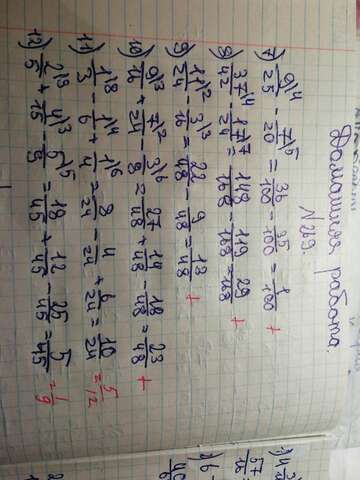 Домашняя работа.
№219.
7) 9|4/25 - 7|5/20 = 36/100 - 35/100 = 1/100 +
8) 37|4/42 - 17|7/24 = 148/168 - 119/168 = 29/168 +
9) 11|2/24 - 3|3/16 = 22/48 - 9/48 = 13/48 +
10) 9|3/16 + 7|2/24 - 3|6/8 = 27/48 + 14/48 - 18/48 = 23/48 +
11) 1|8/3 - 1|4/6 + 1|6/4 = 8/24 - 4/24 + 6/24 = 10/24 = 5/12
12) 2|9/5 + 4|3/15 - 5|5/9 = 18/45 + 12/45 - 25/45 = 5/45 = 1/9